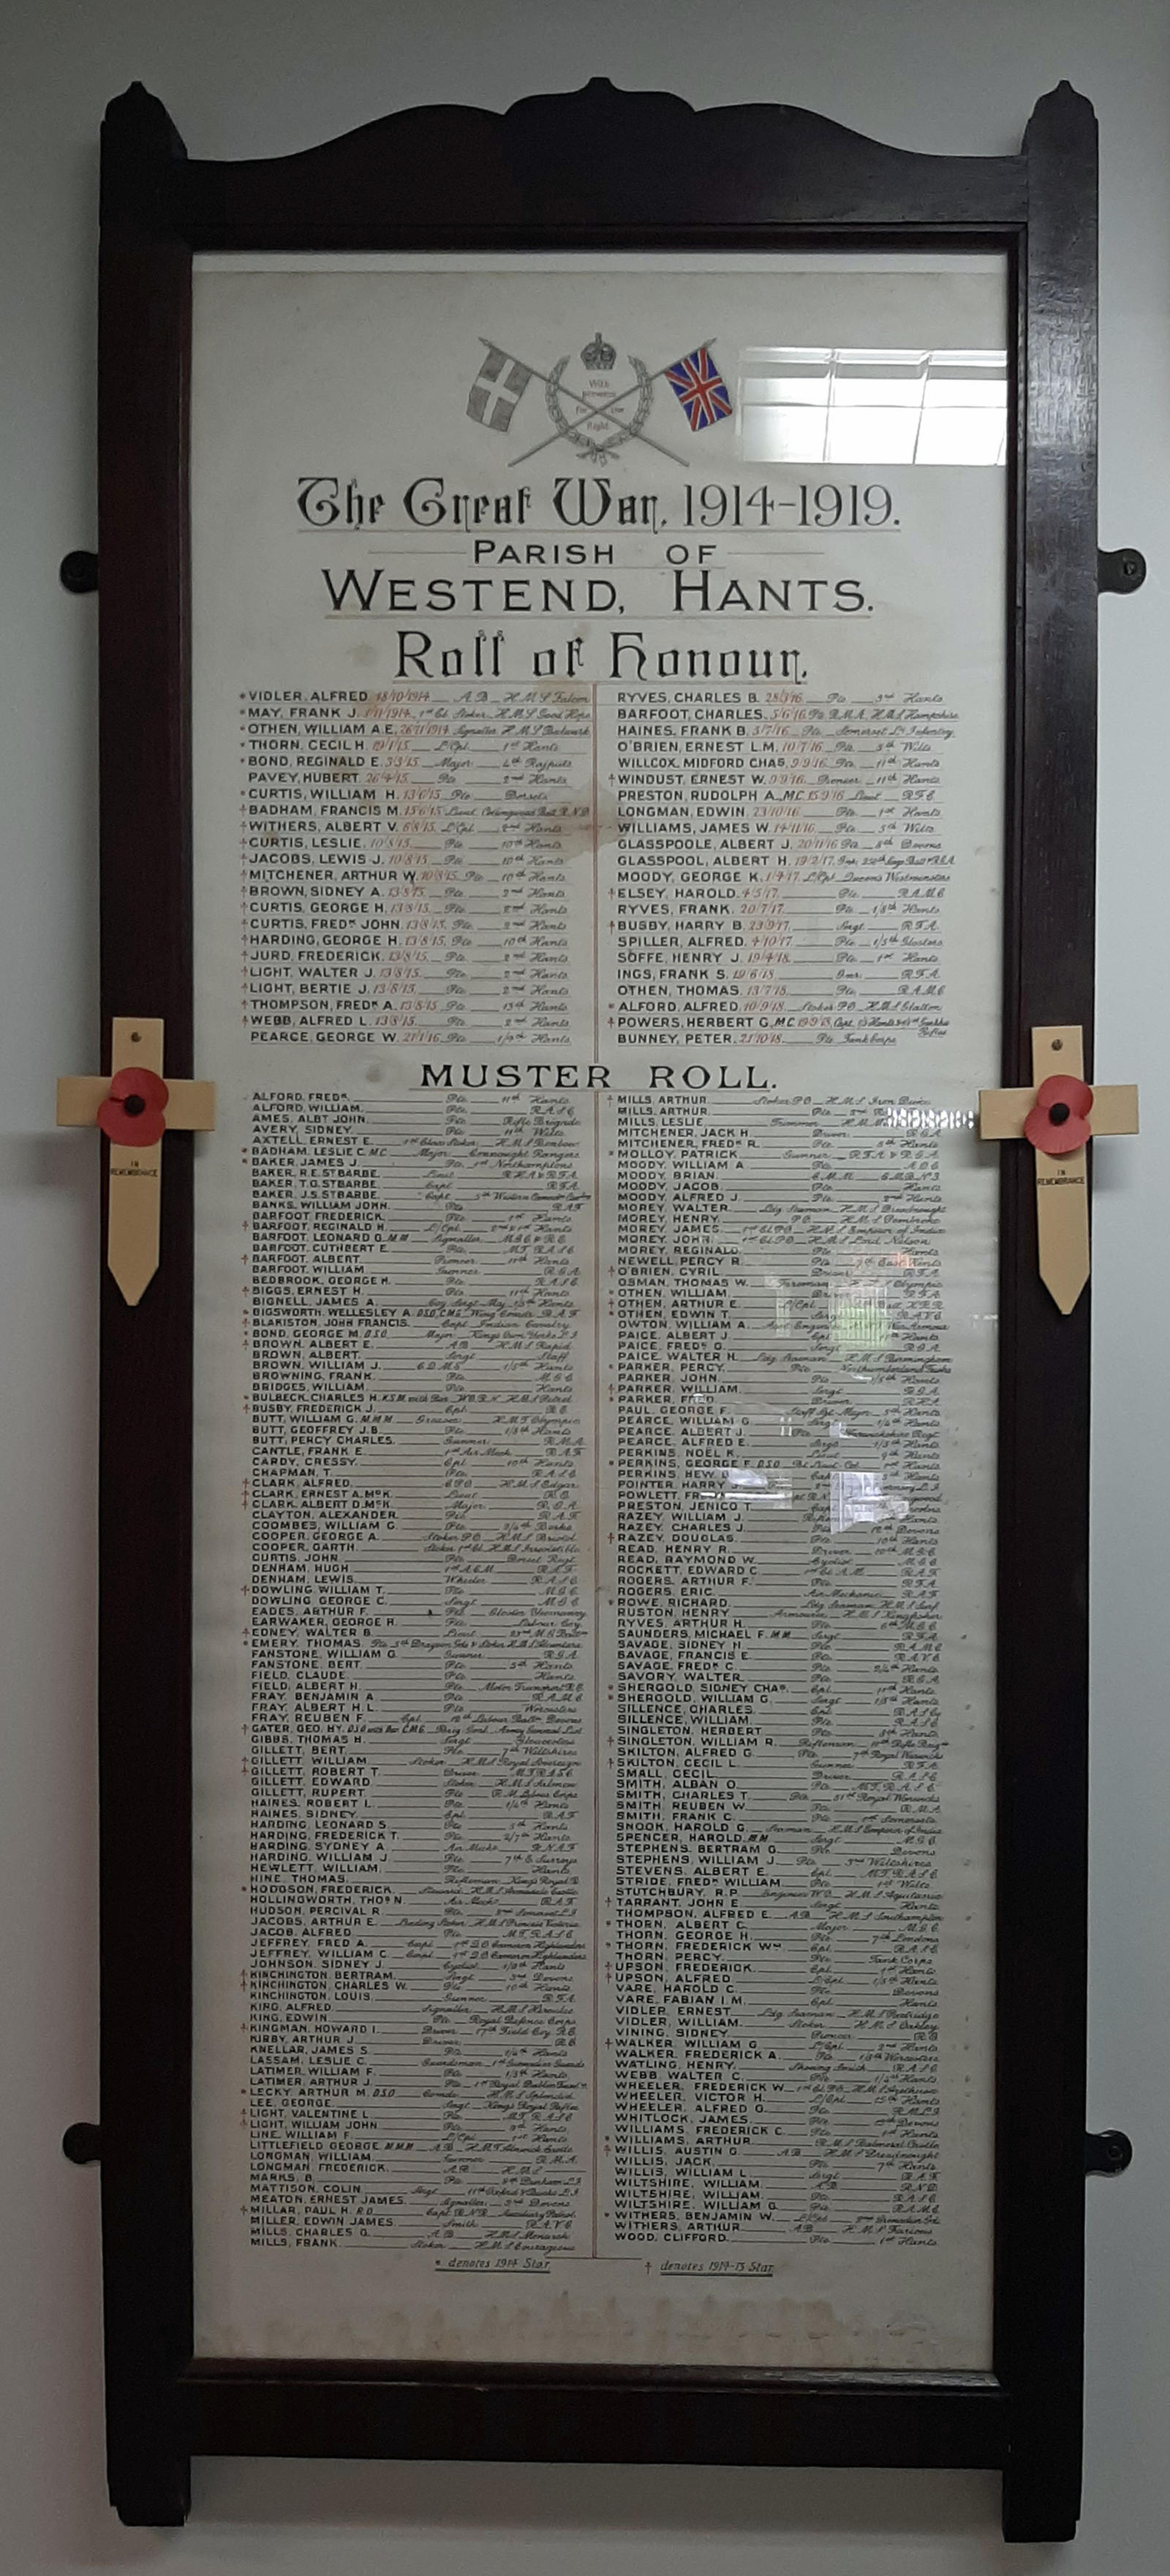 The Great War, 1914-1919.
PARISH OF
WESTEND, HANTS.
Roll of Honour.
* VIDLER, ALFRED. 18/10/1914 A.B. H.M.S Falcon
* MAY, FRANK J. 1/11/1914 1st Cl. Stoker H.M.S Good Hope
* OTHEN, WILLIAM A.E. 26/11/1914 Signaller H.M.S Bulwark
* THORN, CECIL H. 19/1/15 L/Cpl 1st Hants
* BOND, REGINALD E. 3/3/15 Major 4th Rajputs
PAVEY, HUBERT. 26/4/15 Pte 2nd Hants
* CURTIS, WILLIAM H. 13/6/15 Pte Dorsets
† BADHAM, FRANCIS M. 15/6/15 Lieut. Collingwood Batt. R.N.D
† WITHERS, ALBERT V. 6/8/15 L/Cpl 2nd Hants
† CURTIS, LESLIE. 10/8/15 Pte 10th Hants
† JACOBS, LEWIS J. 10/8/15 Pte 10th Hants
† MITCHENER, ARTHUR W. 10/8/15 Pte 10th Hants
† BROWN, SIDNEY A. 13/8/15 Pte 2nd Hants
† CURTIS, GEORGE H. 13/8/15 Pte 2nd Hants
† CURTIS, FREDK JOHN. 13/8/15 Pte 2nd Hants
† HARDING, GEORGE H. 13/8/15 Pte 10th Hants
† JURD, FREDERICK. 13/8/15 Pte 2nd Hants
† LIGHT, WALTER J. 13/8/15 Pte 2nd Hants
† LIGHT, BERTIE J. 13/8/15 Pte 2nd Hants
† THOMPSON, FREDK A. 13/8/15 Pte Hants
† WEBB, ALFRED L. 13/8/15 Pte 2nd Hants
PEARCE, GEORGE W. 21/1/16 Pte Hants
RYVES, CHARLES B. Pte 3rd Hants
BARFOOT, CHARLES. 5/6/16 Pte R.M.A. H.M.S Hampshire
HAINES, FRANK B. 3/7/16 Pte Somerset Lt Infantry
O'BRIEN, ERNEST L.M. 10/7/16 Pte 5th Wilts
WILLCOX, MIDFORD CHAS. 9/9/16 Pte 11th Hants
† WINDUST, ERNEST W. 9/9/16 Pioneer 11th Hants
PRESTON, RUDOLPH A., M.C. 15/9/16 Lieut R.F.C
LONGMAN, EDWIN. 23/10/16 Pte 1st Hants
WILLIAMS, JAMES W. 14/11/16 Pte 5th Wilts
GLASSPOOLE, ALBERT J. 20/11/16 Pte 8th Devons
GLASSPOOL, ALBERT H. 19/2/17
MOODY, GEORGE K. 1/4/17 L/Cpl Queens Westminsters
† ELSEY, HAROLD. 4/5/17 Pte R.A.M.C
RYVES, FRANK. 20/7/17 Pte 1/8th Hants
† BUSBY, HARRY B. 23/9/17 Sergt R.F.A
SPILLER, ALFRED. 4/10/17 Pte 1/5th Glosters
SOFFE, HENRY J. 19/4/18 Pte 1st Hants
INGS, FRANK S. 19/6/18 Gnr. R.F.A
OTHEN, THOMAS. 13/7/18 Pte R.A.M.C
* ALFORD, ALFRED. 10/9/18 Stoker P.O H.M.S Glatton
† POWERS, HERBERT G, M.C 19/9/18 Capt.
BUNNEY, PETER. 21/10/18 Pte Tank Corps
MUSTER ROLL.
ALFORD, FREDK. Pte 11th Hants
ALFORD, WILLIAM. Pte R.A.S.C
AMES, ALBT JOHN. Pte Rifle Brigade
AVERY, SIDNEY. Pte 11th Wilts
AXTELL, ERNEST E. 1st Class Stoker H.M.S
* BADHAM, LESLIE C. M.C Major Connaught Rangers
* BAKER, JAMES J. Pte 1st Northamptons
BAKER, R.E.STBARBE. Lieut R.H.A & R.F.A
BAKER, T.G.STBARBE. Capt R.F.A
BAKER, J.S.STBARBE. Capt
BANKS, WILLIAM JOHN. R.A.F
BARFOOT, FREDERICK. Pte 1st Hants
† BARFOOT, REGINALD H. L/Cpl Hants
BARFOOT, LEONARD G. M.M Signaller
BARFOOT, CUTHBERT E. Pte M.T. R.A.S.C
† BARFOOT, ALBERT. Pioneer 11th Hants
BARFOOT, WILLIAM Gunner R.G.A
BEDBROOK, GEORGE H. Pte R.A.S.C
† BIGGS, ERNEST H. Pte 11th Hants
BIGNELL, JAMES A. Hants
* BIGSWORTH, WELLESLEY A. D.S.O, C.M.G R.A.F
† BLAKISTON, JOHN FRANCIS. Capt Indian Cavalry
* BOND, GEORGE M. D.S.O Major Kings Own Yorks L.I
† BROWN, ALBERT E. A.B. H.M.S Rapid
BROWN, ALBERT. Sergt Staff
BROWN, WILLIAM J. 1/5th Hants
BROWNING, FRANK. Pte M.G.C
BRIDGES, WILLIAM. Pte Hants
* BULBECK, CHARLES H. H.M.S Petrel
† BUSBY, FREDERICK J. Cpl R.E
BUTT, WILLIAM G. M.M.M Greaser H.M.T Olympic
BUTT, GEOFFREY J.B. Pte 1/5th Hants
BUTT, PERCY CHARLES. Gunner R.M.A
CANTLE, FRANK E. 1st Air Mech. R.A.F
CARDY, CRESSY. Cpl 10th Hants
CHAPMAN, T. Pte R.A.S.C
† CLARK, ALFRED. C.P.O H.M.S Edgar
† CLARK, ERNEST A. MCK. Lieut R.E
† CLARK, ALBERT D. MCK. Major R.G.A
CLAYTON, ALEXANDER. Pte R.A.F
COOMBES, WILLIAM G. Pte 2/4th Berks
COOPER, GEORGE A. Stoker P.O H.M.S Bristol
COOPER, GARTH. Stoker 1st Cl. H.M.S Irresistible
CURTIS, JOHN. Pte Dorset Regt.
DENHAM, HUGH. R.A.F
DENHAM, LEWIS. Wheeler R.A.S.C
† DOWLING WILLIAM T. Pte M.G.C
DOWLING GEORGE C. Sergt R.A.S.C
EADES, ARTHUR F. Pte
EARWAKER, GEORGE H. Pte Labour Coy.
† EDNEY, WALTER B. Lieut
* EMERY, THOMAS.
FANSTONE, WILLIAM G. Gunner R.G.A
FANSTONE, BERT. Pte 5th Hants
FIELD, CLAUDE. Pte Hants
FIELD, ALBERT H. Pte Motor Transport
FRAY, BENJAMIN A. Pte R.A.M.C
FRAY, ALBERT H.L. Pte Worcesters
FRAY, REUBEN F. Cpl 12th Labour Battn. Devons
† GATER, GEO. HY. D.S.O with Bar C.M.G Brig. Genl. Army General List
GIBBS, THOMAS H. Sergt Gloucesters
GILLETT, BERT. Pte 7th Wiltshires
† GILLETT, WILLIAM Stoker H.M.S Royal Sovereign
† GILLETT, ROBERT T. Driver M.T.R.A.S.C
GILLETT, EDWARD. Stoker H.M.S Salmon
GILLETT, RUPERT. Pte R.M. Labour Corps
HAINES, ROBERT L. Pte 1/4th Hants
HAINES, SIDNEY. Cpl R.A.F
HARDING, LEONARD S. Pte 5th Hants
HARDING, FREDERICK T. Pte 2/7th Hants
HARDING, SYDNEY A. Air Mech. R.N.A.S
HARDING, WILLIAM J. Pte 7th E Surreys
HEWLETT, WILLIAM. Pte Hants
HINE, THOMAS. Rifleman Kings Royal R
* HODGSON, FREDERICK. Steward H.M.S Armadale Castle
HOLLINGWORTH, THOS N. Air Mech R.A.F
HUDSON, PERCIVAL R. Pte Somerset L.I
JACOBS, ARTHUR E. Leading Stoker H.M.S Princess Victoria
JACOB, ALFRED. Pte M.T. R.A.S.C
JEFFREY, FRED A. Corpl Cameron Highlanders
JEFFREY, WILLIAM C. Corpl Cameron Highlanders
JOHNSON, SIDNEY J. Cyclist Hants
† KINCHINGTON, BERTRAM. Sergt 3rd Devons
† KINCHINGTON, CHARLES W. Pte 10th Hants
KINCHINGTON, LOUIS. Gunner R.F.A
KING, ALFRED. Signaller H.M.S Hercules
KING, EDWIN. Pte Royal Defence Corps
† KINGMAN, HOWARD I. Driver 17th Field Coy. R.E
KIRBY, ARTHUR J. Driver R.E
KNELLAR, JAMES S. Pte 1/4th Hants
LASSAM, LESLIE C. Guardsman 1st Grenadier Guards
LATIMER, WILLIAM F. Pte 1/5th Hants
LATIMER, ARTHUR J. Pte 1st Royal Dublin Fusrs
* LECKY, ARTHUR M. D.S.O Comdr. H.M.S Splendid
LEE, GEORGE. Sergt Kings Royal Rifles
† LIGHT, VALENTINE L. Pte M.T. R.A.S.C
† LIGHT, WILLIAM JOHN Pte 8th Hants
LINE, WILLIAM F. L/Cpl 1st Hants
LITTLEFIELD GEORGE. M.M.M A.B. H.M.T Alnwick Castle
LONGMAN, WILLIAM. Gunner R.M.A
LONGMAN, FREDERICK. A.B. H.M.S
MARKS, B. Pte Durham L.I
MATTISON, COLIN. Sergt Oxford & Bucks L.I
MEATON, ERNEST JAMES. Signaller 3rd Devons
† MILLAR, PAUL H. R.D Capt. R.N.R. Auxiliary Patrol
MILLER, EDWIN JAMES. Smith R.A.V.C
MILLS, CHARLES G. A.B. H.M.S Monarch
MILLS, FRANK. Stoker H.M.S Courageous
† MILLS, ARTHUR. Stoker P.O H.M.S Iron Duke
MILLS, ARTHUR. Pte
MILLS, LESLIE Trimmer
MITCHENER, JACK H. Driver R.G.A
MITCHENER, FREDK R. Pte 5th Hants
* MOLLOY, PATRICK Gunner R.F.A & R.G.A
MOODY, WILLIAM A Pte A.O.C
MOODY, BRIAN. C.M.M. C.M.B No 3
MOODY, JACOB. Pte Hants
MOODY, ALFRED J. Pte 2nd Hants
MOREY, WALTER Ldg Seaman H.M.S Dreadnought
MOREY, HENRY. P.O. H.M.S Pembroke
MOREY, JAMES 1st Cl P.O H.M.S Empress of India
MOREY, JOHN. 1st Cl P.O H.M.S Lord Nelson
MOREY, REGINALD. Pte Hants
NEWELL, PERCY R. Pte 7th East Kents
† O'BRIEN, CYRIL. Driver R.F.A
OSMAN, THOMAS W. Fireman Olympic
* OTHEN, WILLIAM. Driver R.F.A
† OTHEN, ARTHUR E. L/Cpl
* OTHEN, EDWIN T. R.A.V.C
OWTON, WILLIAM A.
PAICE, ALBERT J. Cpl Hants
PAICE, FREDK G. Sergt R.G.A
PAICE, WALTER H. Ldg Seaman H.M.S Birmingham
* PARKER, PERCY. Pte Northumberland Fusrs
PARKER, JOHN. Pte 1/5th Hants
† PARKER, WILLIAM. Sergt R.G.A
* PARKER, FRED. Driver R.H.A
PAUL, GEORGE F. Staff Sgt Major 5th Hants
PEARCE, WILLIAM G. Sergt 1/4th Hants
PEARCE, ALBERT J. Warwickshire Regt.
PEARCE, ALFRED E. Sergt 1/5th Hants
PERKINS, NOEL K. Lieut 9th Hants
* PERKINS, GEORGE F D.S.O Bt. Lieut Col. Hants
PERKINS, HEW. Hants
POINTER, HARRY
POWLETT, FR
PRESTON, JENICO T.
RAZEY, WILLIAM J. Hants
RAZEY, CHARLES J. Pte 12th Devons
† RAZEY, DOUGLAS. Pte 10th Hants
READ, HENRY R. Driver M.G.C
READ, RAYMOND W. Cyclist M.G.C
ROCKETT, EDWARD C. R.A.F
ROGERS, ARTHUR F. Pte R.F.A
ROGERS, ERIC. Air Mechanic R.A.F
* ROWE, RICHARD. Ldg Seaman H.M.S
RUSTON, HENRY Armourer H.M.S Kingfisher
RYVES, ARTHUR H. Pte 6th M.G.C
SAUNDERS, MICHAEL F. M.M Sergt R.F.A
SAVAGE, SIDNEY H. Pte R.A.M.C
SAVAGE, FRANCIS E. Pte R.A.V.C
SAVAGE, FREDK C. Pte 2/4th Hants
SAVORY, WALTER Pte R.A.S.C
* SHERGOLD, SIDNEY CHAS. Cpl 11th Hants
* SHERGOLD, WILLIAM G. Sergt 1/8th Hants
SILLENCE, CHARLES. Cpl R.A.S.C
SILLENCE, WILLIAM. Pte R.A.S.C
SINGLETON, HERBERT Pte 5th Hants
† SINGLETON, WILLIAM R. Rifleman 11th Rifle Brig.
SKILTON, ALFRED G. Pte 7th Royal Warwicks
† SKILTON, CECIL L. Gunner R.F.A
SMALL, CECIL. Driver R.A.S.C
SMITH, ALBAN O. Pte M.T., R.A.S.C
SMITH, CHARLES T. Pte 51st Royal Warwicks
SMITH, REUBEN W. Pte R.M.A
SMITH, FRANK C. Pte 1st Somersets
SNOOK, HAROLD G. Seaman H.M.S Empress of India
SPENCER, HAROLD. M.M Sergt M.G.C
STEPHENS, BERTRAM G. Pte Devons
STEPHENS, WILLIAM J. Pte 3rd Wiltshires
STEVENS, ALBERT E. Cpl M.T.R.A.S.C
STRIDE, FREDK WILLIAM. Pte 1st Wilts
STUTCHBURY, R.P. Engineer H.M.S Aquitania
† TARRANT, JOHN E. Sergt Hants
THOMPSON, ALFRED E. A.B. H.M.S Southampton
* THORN, ALBERT C. Major M.G.C
THORN, GEORGE H. Pte 7th Londons
* THORN, FREDERICK WM. Cpl R.A.S.C
THORN, PERCY. Pte Tank Corps
† UPSON, FREDERICK. Cpl 1st Hants
† UPSON, ALFRED. L/Cpl 1/5th Hants
VARE, HAROLD C. Pte Devons
VARE, FABIAN I.M. Cpl Hants
VIDLER, ERNEST Ldg Seaman H.M.S Partridge
VIDLER, WILLIAM. Stoker H.M.S Oakley
VINING, SIDNEY. Pioneer R.E
† WALKER, WILLIAM G. L/Cpl 2nd Hants
WALKER, FREDERICK A. Pte Worcesters
WATLING, HENRY. Shoeing Smith R.A.S.C
WEBB, WALTER C. Pte 1/4th Hants
WHEELER, FREDERICK W. 1st Cl. P.O. H.M.S
WHEELER, VICTOR H. L/Cpl 15th Hants
WHEELER, ALFRED G. Pte R.M.L.I
WHITLOCK, JAMES. Pte Devons
WILLIAMS, FREDERICK C. Pte 1st Hants
* WILLIAMS, ARTHUR. R.M.S Balmoral Castle
† WILLIS, AUSTIN G. A.B. H.M.S Dreadnought
WILLIS, JACK. Pte 7th Hants
WILLIS, WILLIAM L. Sergt R.A.F
WILTSHIRE, WILLIAM. A.B. R.N.D
WILTSHIRE, WILLIAM. Pte R.A.S.C
WILTSHIRE, WILLIAM G. Pte R.A.M.C
* WITHERS, BENJAMIN W. L/Cpl 2nd Grenadier Gds
WITHERS, ARTHUR. A.B. H.M.S Furious
WOOD, CLIFFORD. Pte 1st Hants
* denotes 1914 Star
† denotes 1914-15 Star
IN
REMEMBRANCE
IN
REMEMBRANCE